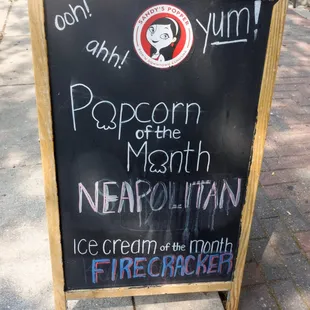 SANDY'S POPPER
ooh!
yum!
ahh!
Popcorn
of the
Month
NEAPOLITAN
ICE CREAM of the month
FIRECRACKER